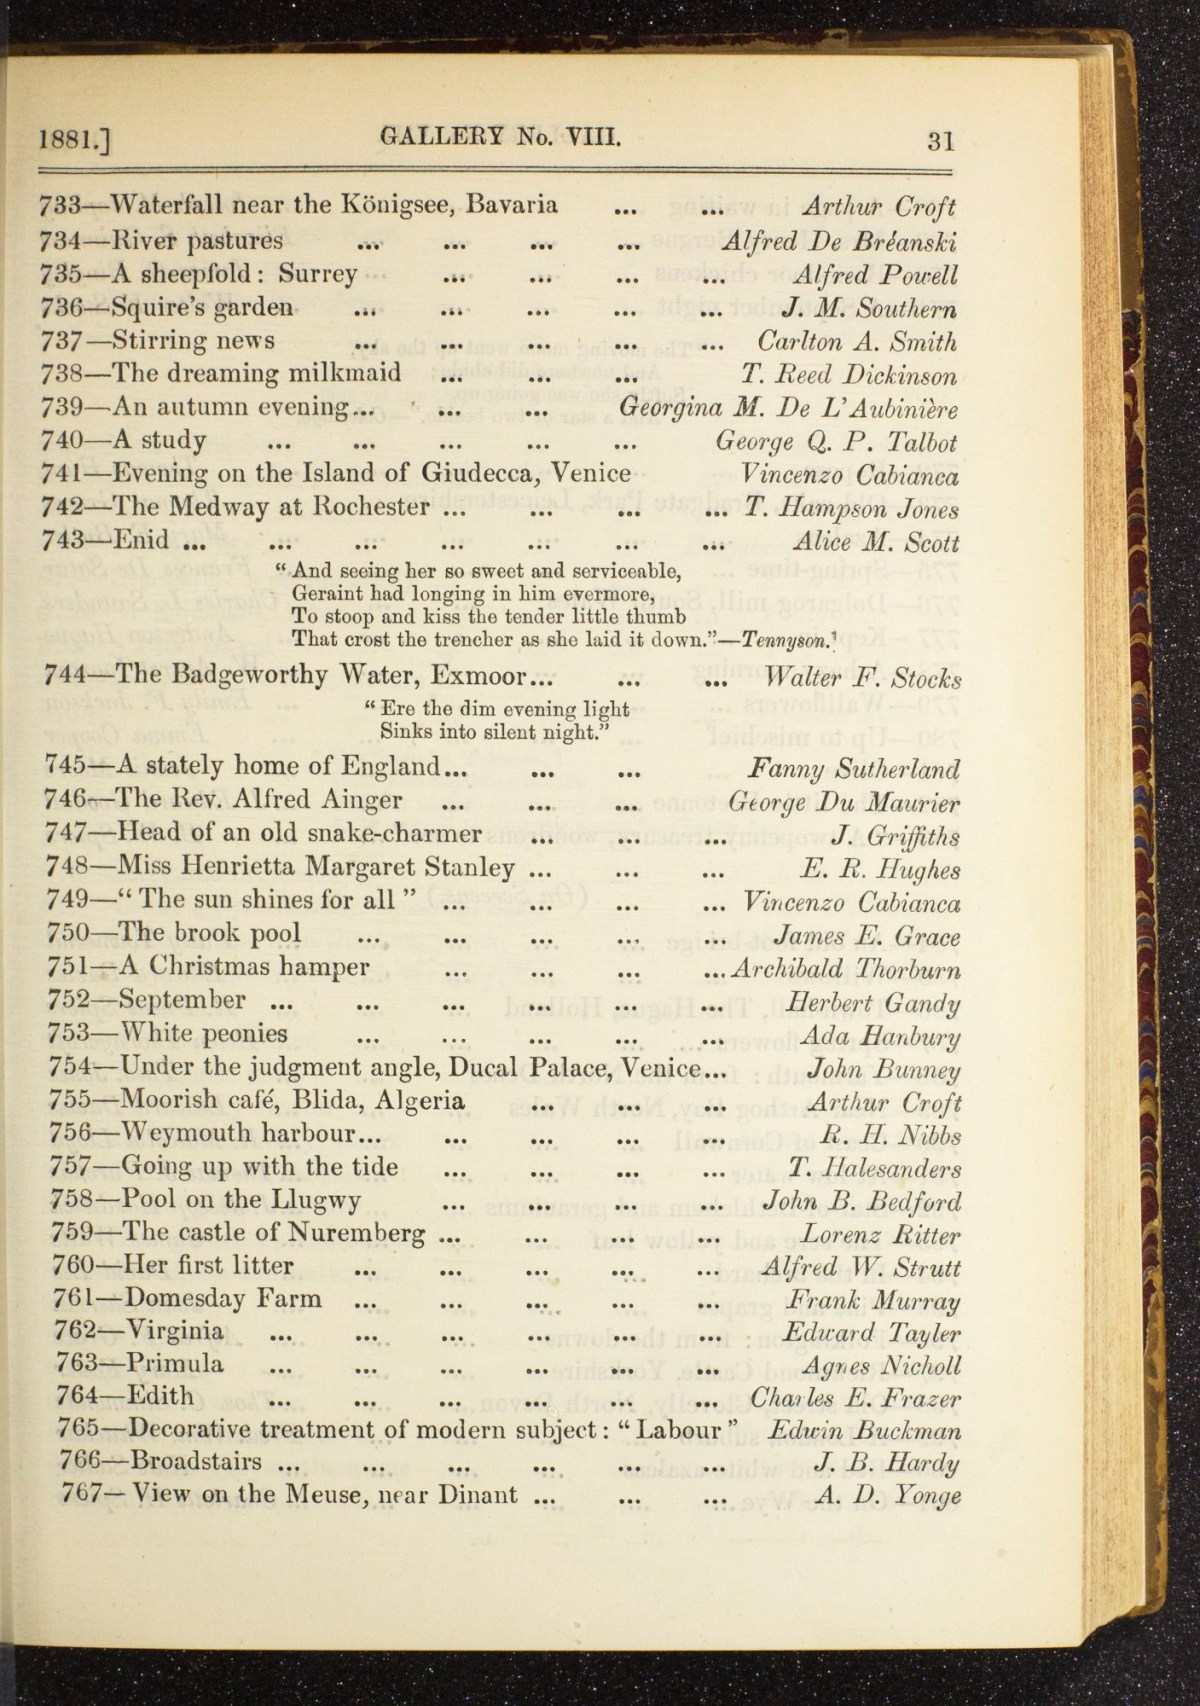 1881.] GALLERY No. VIII. 31
733—Waterfall near the Königsee, Bavaria ... ... Arthur Croft
734—River pastures ... ... ... ... Alfred De Bréanski
735—A sheepfold : Surrey ... ... ... ... Alfred Powell
736—Squire's garden ... ... ... ... ... J. M. Southern
737—Stirring news ... ... ... ... ... Carlton A. Smith
738—The dreaming milkmaid ... ... ... T. Reed Dickinson
739—An autumn evening... ... ... Georgina M. De L'Aubinière
740—A study ... ... ... ... ... George Q. P. Talbot
741—Evening on the Island of Giudecca, Venice Vincenzo Cabianca
742—The Medway at Rochester ... ... ... ... T. Hampson Jones
743—Enid ... ... ... ... ... ... ... Alice M. Scott
“ And seeing her so sweet and serviceable,
Geraint had longing in him evermore,
To stoop and kiss the tender little thumb
That crost the trencher as she laid it down.”—Tennyson.
744—The Badgeworthy Water, Exmoor... ... ... Walter F. Stocks
“ Ere the dim evening light
Sinks into silent night.”
745—A stately home of England... ... ... Fanny Sutherland
746—The Rev. Alfred Ainger ... ... ... George Du Maurier
747—Head of an old snake-charmer ... ... ... J. Griffiths
748—Miss Henrietta Margaret Stanley ... ... ... E. R. Hughes
749—“ The sun shines for all ” ... ... ... ... Vincenzo Cabianca
750—The brook pool ... ... ... ... ... James E. Grace
751—A Christmas hamper ... ... ... ... Archibald Thorburn
752—September ... ... ... ... ... ... Herbert Gandy
753—White peonies ... ... ... ... ... Ada Hanbury
754—Under the judgment angle, Ducal Palace, Venice... John Bunney
755—Moorish café, Blida, Algeria ... ... ... Arthur Croft
756—Weymouth harbour... ... ... ... ... R. H. Nibbs
757—Going up with the tide ... ... ... ... T. Halesanders
758—Pool on the Llugwy ... ... ... ... John B. Bedford
759—The castle of Nuremberg ... ... ... ... Lorenz Ritter
760—Her first litter ... ... ... ... ... Alfred W. Strutt
761—Domesday Farm ... ... ... ... ... Frank Murray
762—Virginia ... ... ... ... ... ... Edward Tayler
763—Primula ... ... ... ... ... ... Agnes Nicholl
764—Edith ... ... ... ... ... ... Charles E. Frazer
765—Decorative treatment of modern subject : “ Labour ” Edwin Buckman
766—Broadstairs ... ... ... ... ... ... J. B. Hardy
767—View on the Meuse, near Dinant ... ... ... A. D. Yonge